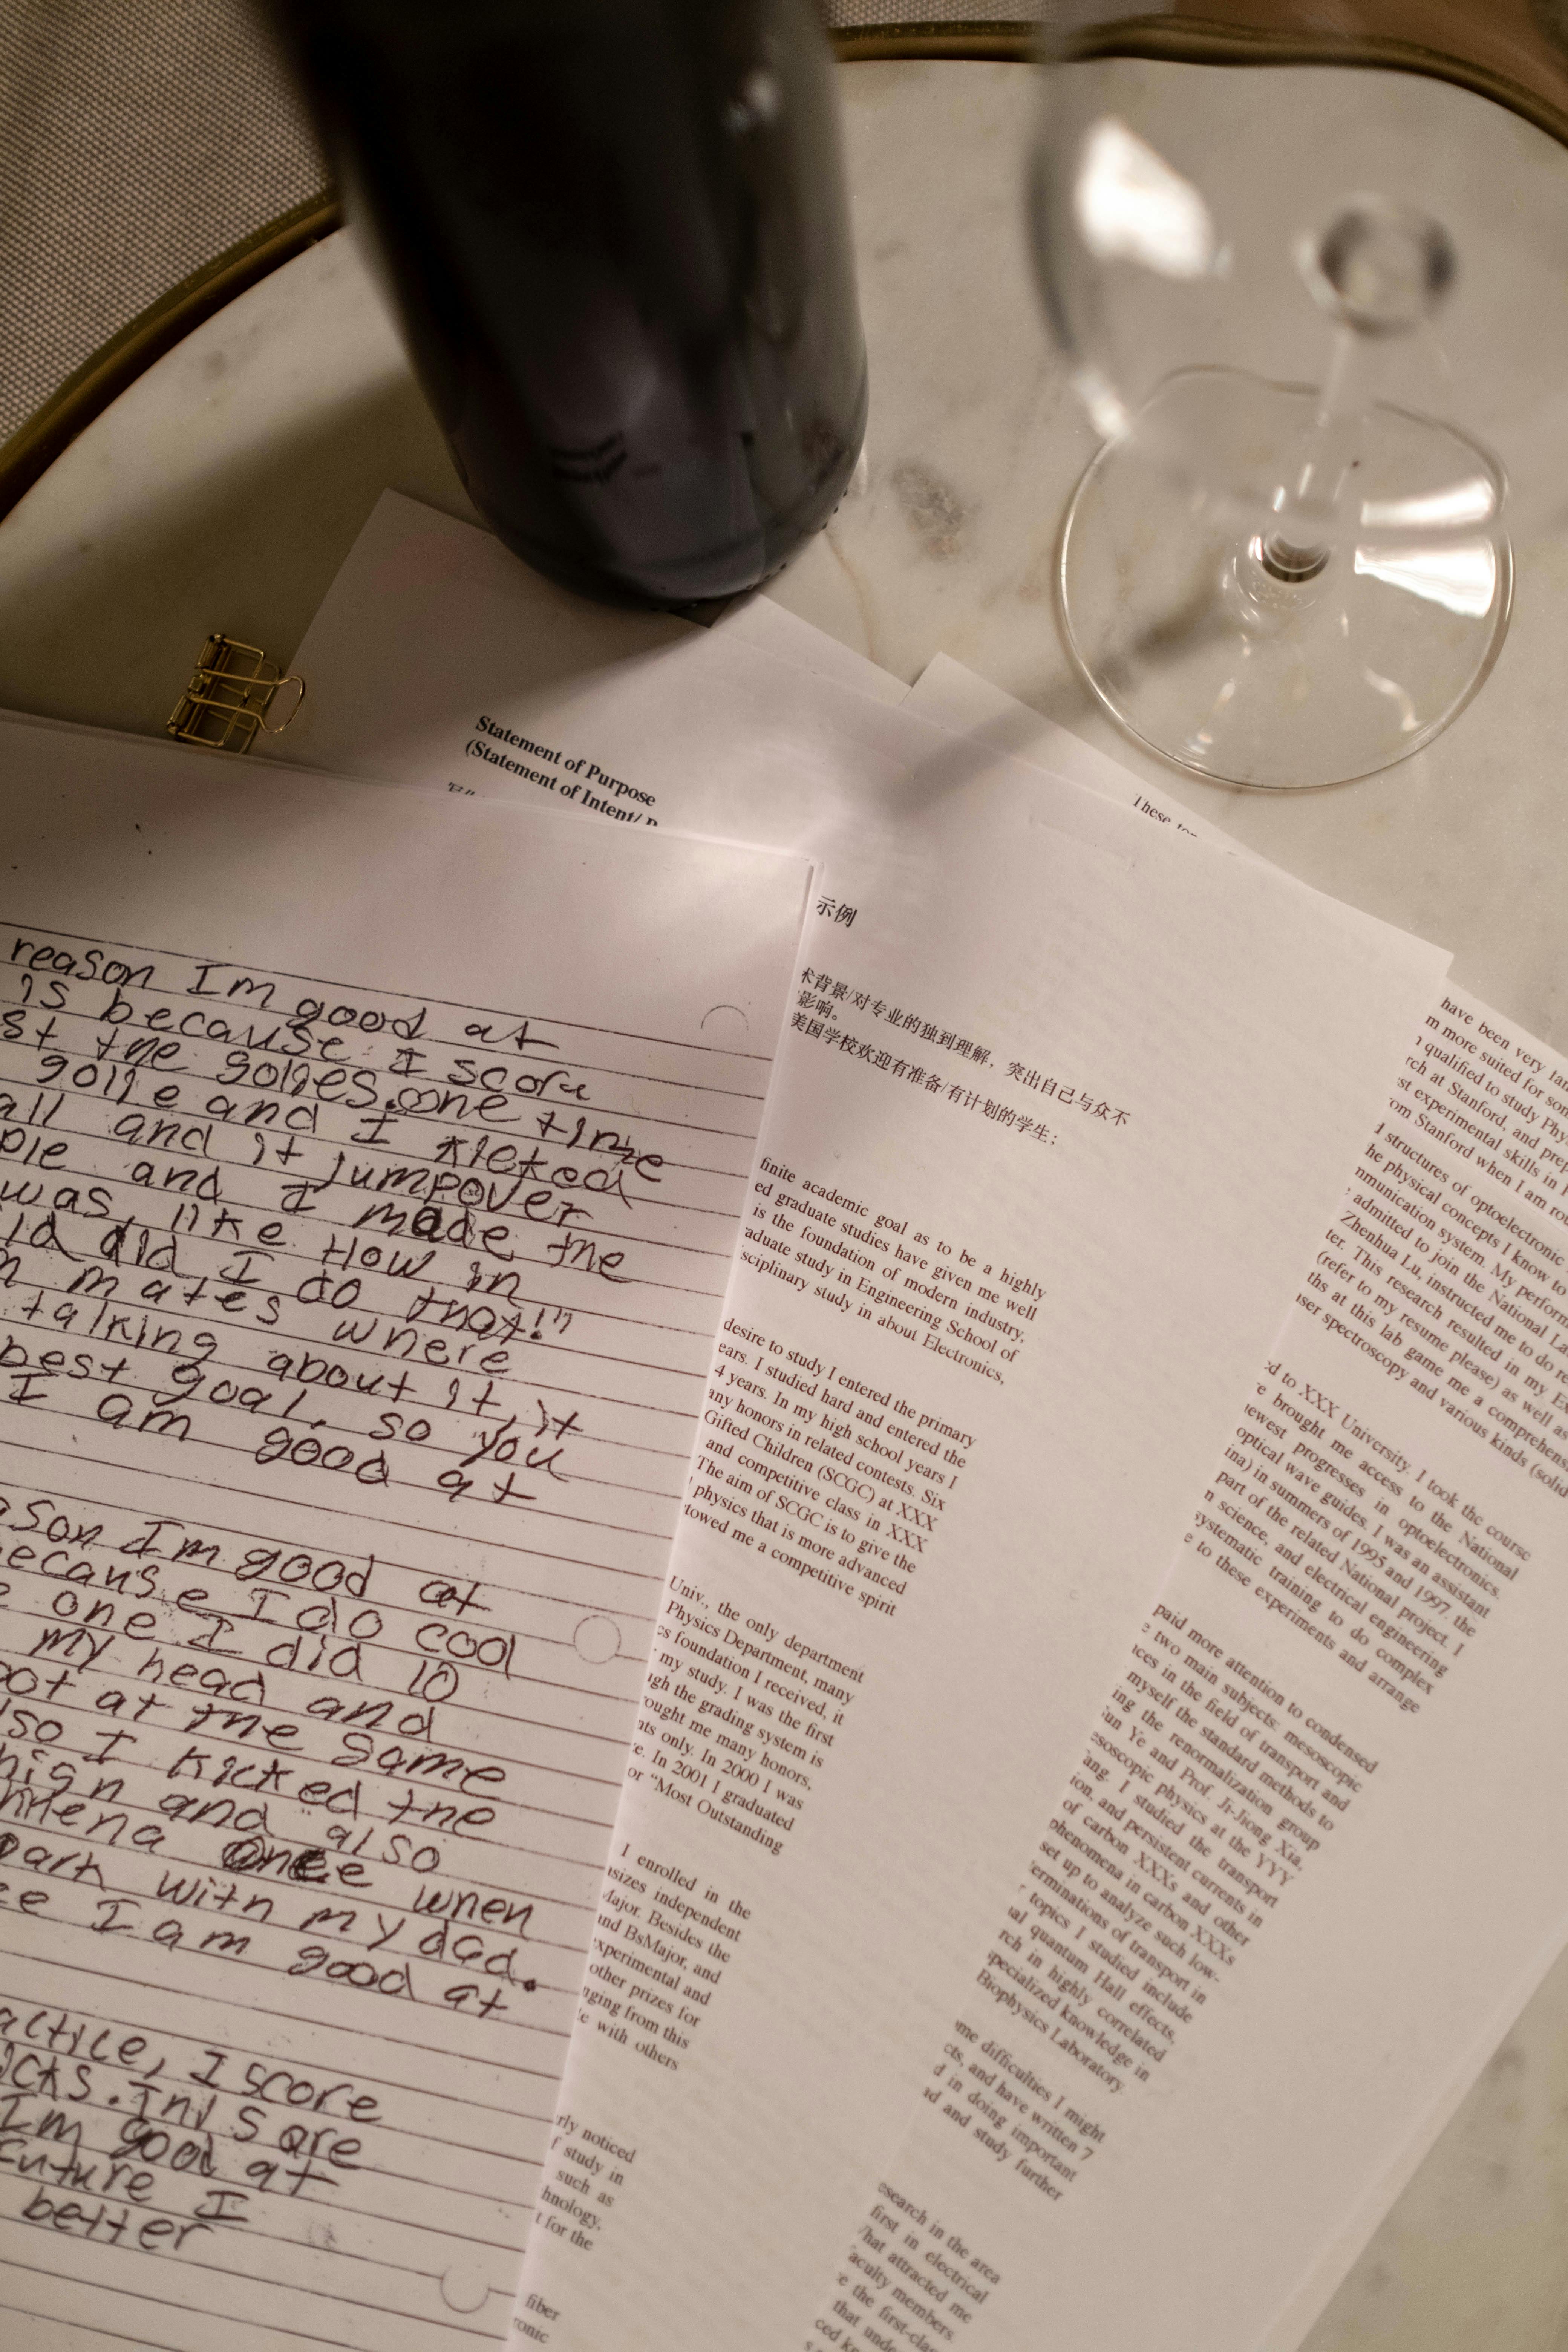 Statement of Purpose
(Statement of Intent/
These
示例
术背景/对专业的独到理解，突出自己与众不
影响。
美国学校欢迎有准备/有计划的学生；
reason Im good at
is because I score
st the golies. one time
golie and I kicked
all and it jumpover
ple and I made the
was, like How in
ld did I do that!"
m mates where
talking about it, it
best goal. so you
I am good at
ason Im good at
ecause I do cool
e one I did 10
my head and
oot at the same
lso I kicked the
high and also
once when
park with my dad.
ee I am good at
actice, I score
icks. This are
Im good at
future I
better
finite academic goal as to be a highly
ed graduate studies have given me well
is the foundation of modern industry,
aduate study in Engineering School of
sciplinary study in about Electronics,
desire to study I entered the primary
ears. I studied hard and entered the
4 years. In my high school years I
any honors in related contests. Six
Gifted Children (SCGC) at XXX
and competitive class in XXX
The aim of SCGC is to give the
physics that is more advanced
towed me a competitive spirit
Univ., the only department
Physics Department, many
cs foundation I received, it
my study. I was the first
ugh the grading system is
ought me many honors,
nts only. In 2000 I was
e. In 2001 I graduated
or "Most Outstanding
I enrolled in the
asizes independent
Major. Besides the
and BsMajor, and
experimental and
other prizes for
nging from this
e with others
rly noticed
f study in
such as
hnology,
t for the
fiber
ronic
have been very
m more suited for
qualified to study
rch at Stanford, and
st experimental skills in
om Stanford when I am
d structures of optoelectronic
he physical concepts I know to
mmunication system. My
admitted to join the National
Zhenhua Lu, instructed me to do
ter. This research resulted in my
(refer to my resume please) as well as
ths at this lab game me a
ser spectroscopy and various kinds (solid
ed to XXX University. I took the course
e brought me access to the National
ewest progresses in optoelectronics.
optical wave guides. I was an assistant
ina) in summers of 1995 and 1997. the
part of the related National project. I
n science, and electrical engineering
systematic training to do complex
e to these experiments and arrange
paid more attention to condensed
e two main subjects: mesoscopic
nces in the field of transport and
myself the standard methods to
ing the renormalization group
un Ye and Prof. Ji-Jiong Xia,
esoscopic physics at the YYY
ang. I studied the transport
ion, and persistent currents in
of carbon XXXs and other
phenomena in carbon XXXs
set up to analyze such low-
erminations of transport in
topics I studied include
al quantum Hall effects,
rch in highly correlated
specialized knowledge in
Biophysics Laboratory.
me difficulties I might
cts, and have written 7
d in doing important
nd and study further
esearch in the area
first in electrical
What attracted me
aculty members.
e the
that